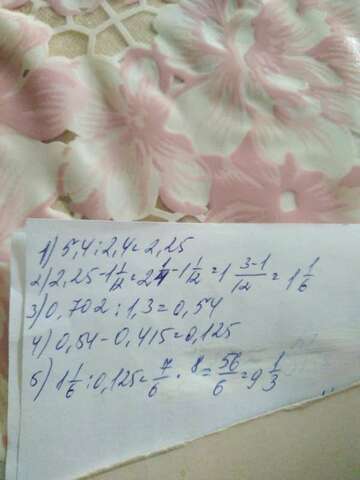 1) 5,4:2,4=2,25
2) 2,25-1 1/12=2 1/4-1 1/12=1 3-1/12=1 1/6
3) 0,702:1,3=0,54
4) 0,54-0,415=0,125
5) 1 1/6:0,125=7/6·8=56/6=9 1/3